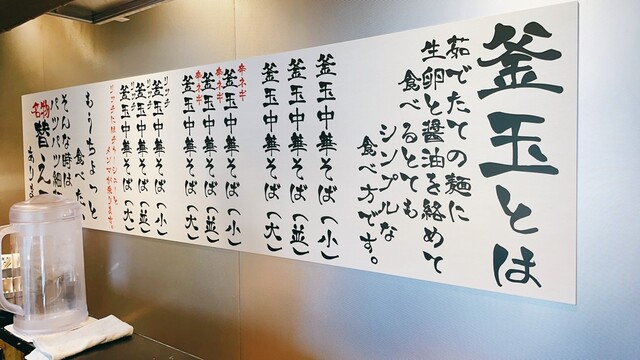 釜玉とは
茹でたての麺に
生卵と醤油を絡めて
食べるとても
シンプルな
食べ方です。
釜玉中華そば(小)
釜玉中華そば(並)
釜玉中華そば(大)
辛ネギ
釜玉中華そば(小)
辛ネギ
釜玉中華そば(並)
辛ネギ
釜玉中華そば(大)
リッチ
釜玉中華そば(小)
リッチ
釜玉中華そば(並)
リッチ
釜玉中華そば(大)
もうちょっと
食べた
そんな時は
パッパ
名物
替え
あり